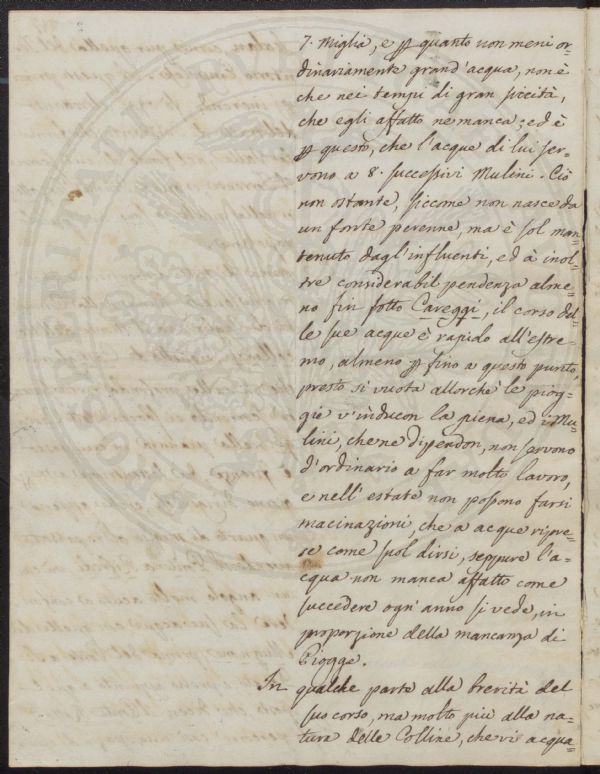 7. miglia, e ꝑ quanto non meni or=
dinariamente grand'acqua, non è
che nei tempi di gran siccità,
che egli affatto ne manca; ed è
ꝑ questo, che l'acque di lui ser=
vono a 8. successivi Mulini. Ciò
non ostante, siccome non nasce da
un fonte perenne, ma è sol man=
tenuto dagl'influenti, ed à inol=
tre considerabil pendenza alme=
no fin sotto Careggi, il corso del=
le sue acque è rapido all'estre=
mo, almeno ꝑ fino a questo punto,
presto si vuota allorchè le piog=
gie v'inducon la piena, ed i Mu=
lini, che ne dipendon, non servono
d'ordinario a far molto lavoro,
e nell'estate non possono farsi
macinazioni, che a acque ripre=
se come suol dirsi, seppure l'a=
cqua non manca affatto come
succedere ogn'anno si vede, in
proporzione della mancanza di
Piogge.
In qualche parte alla brevità del
suo corso, ma molto più alla na=
tura delle Colline, che vi acqua=